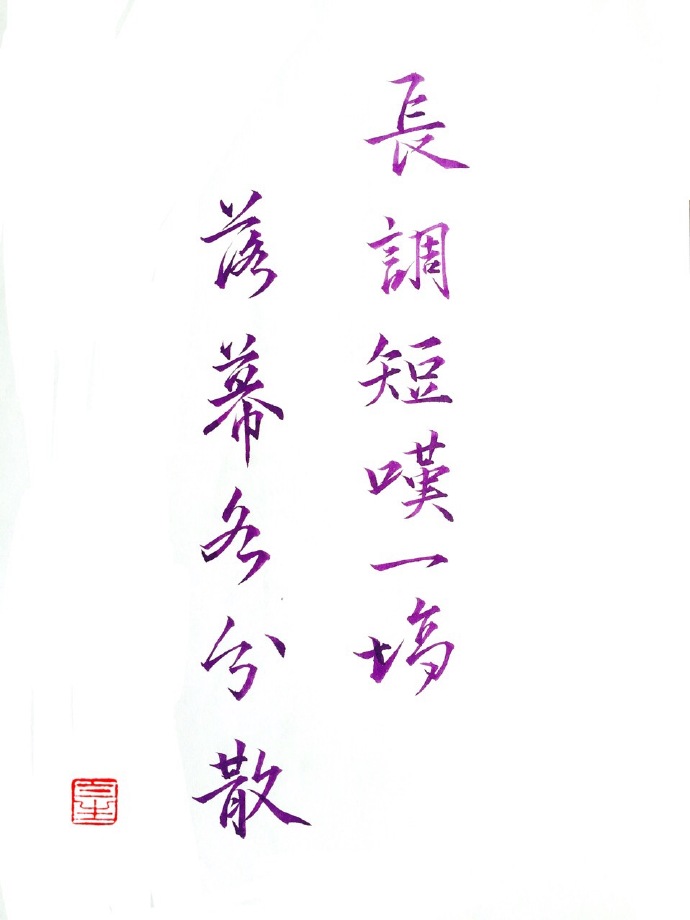 長調短嘆一塲
落幕各分散